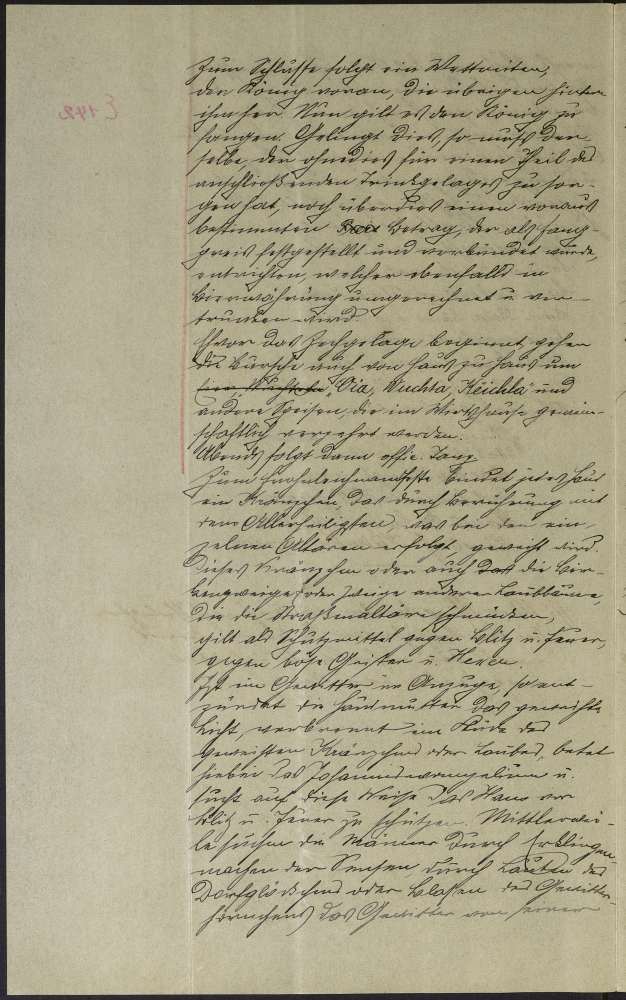 Zum Schlusse folgt ein Wettreiten,
der König voran, die übrigen hinter
ihm her. Nun gilt es den König zu
fangen. Gelingt dies, so muß der-
selbe, der ohnedies für einen Theil des
anschließenden Trinkgelages zu sor-
gen hat, noch überdies einen voraus
bestimmten Betrag, der als Fang-
preis festgestellt und verkündet wurde,
entrichten, welcher ebenfalls in
Bierwährung umgerechnet u. ver-
trunken wird.
Bevor das Zechgelage beginnt, gehen
die Bursche auch von Haus zu Haus um
"Oia, Wuchta, Kiichla" und
andere Speisen, die im Wirtshause gemein-
schaftlich verzehrt werden.
Abends folgt dann offic. Tanz.
Zum Frohnleichnamsfeste bindet jedes Haus
ein Kränzchen, das durch Berührung mit
dem Allerheiligsten, was bei den ein-
zelnen Altären erfolgt, geweiht wird.
Dieses Kränzchen oder auch die Bir-
kenzweige oder Zweige anderer Laubbäume,
die die Straßenaltäre schmücken,
gilt als Schutzmittel gegen Blitz u. Feuer,
gegen böse Geister u. Hexen.
Ist ein Gewitter im Anzuge, so ent-
zündet die Hausmutter das geweihte
Licht, verbrennt im Ende des
geweihten Kränzchens oder Laubes, betet
hiebei das Johannesevangelium u.
sucht auf diese Weise das Haus vor
Blitz u. Feuer zu schützen. Mittlerwei-
le suchen die Männer durch Erklingen-
machen der Sensen durch Läuten des
Dorfglöckchens oder Blasen des Gewitter-
hörnchens das Gewitter von seinem